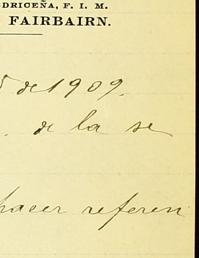 DRICEÑA, F. I. M.
FAIRBAIRN.
5 de 1909.
. de la se
hacer referen